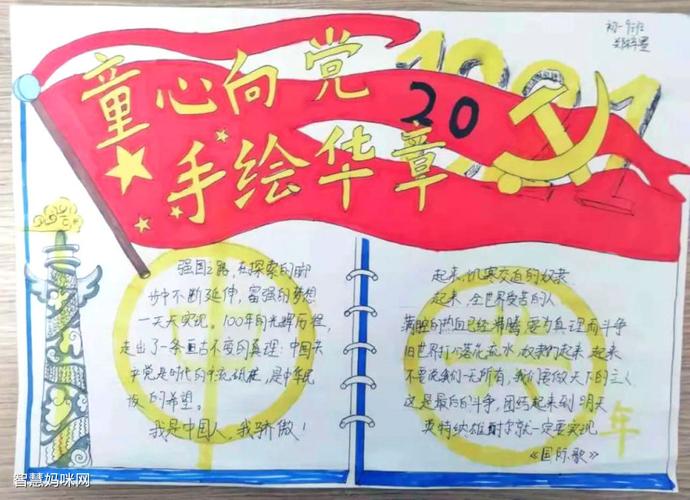 初一9班
童心向党
1921
20
手绘华章
强国之路,在探索的脚
步中不断延伸,富强的梦想
一天天实现。100年的光辉历程,
走出了一条亘古不变的真理:中国共
产党是时代的中流砥柱,是中华民
族的希望。
我是中国人,我骄傲!
起来,饥寒交迫的奴隶
起来,全世界受苦的人
满腔的热血已经沸腾 要为真理而斗争
旧世界打个落花流水 奴隶们起来 起来
不要说我们一无所有,我们要做天下的主人
这是最后的斗争,团结起来到明天
英特纳雄耐尔就一定要实现
《国际歌》
年
智慧妈咪网